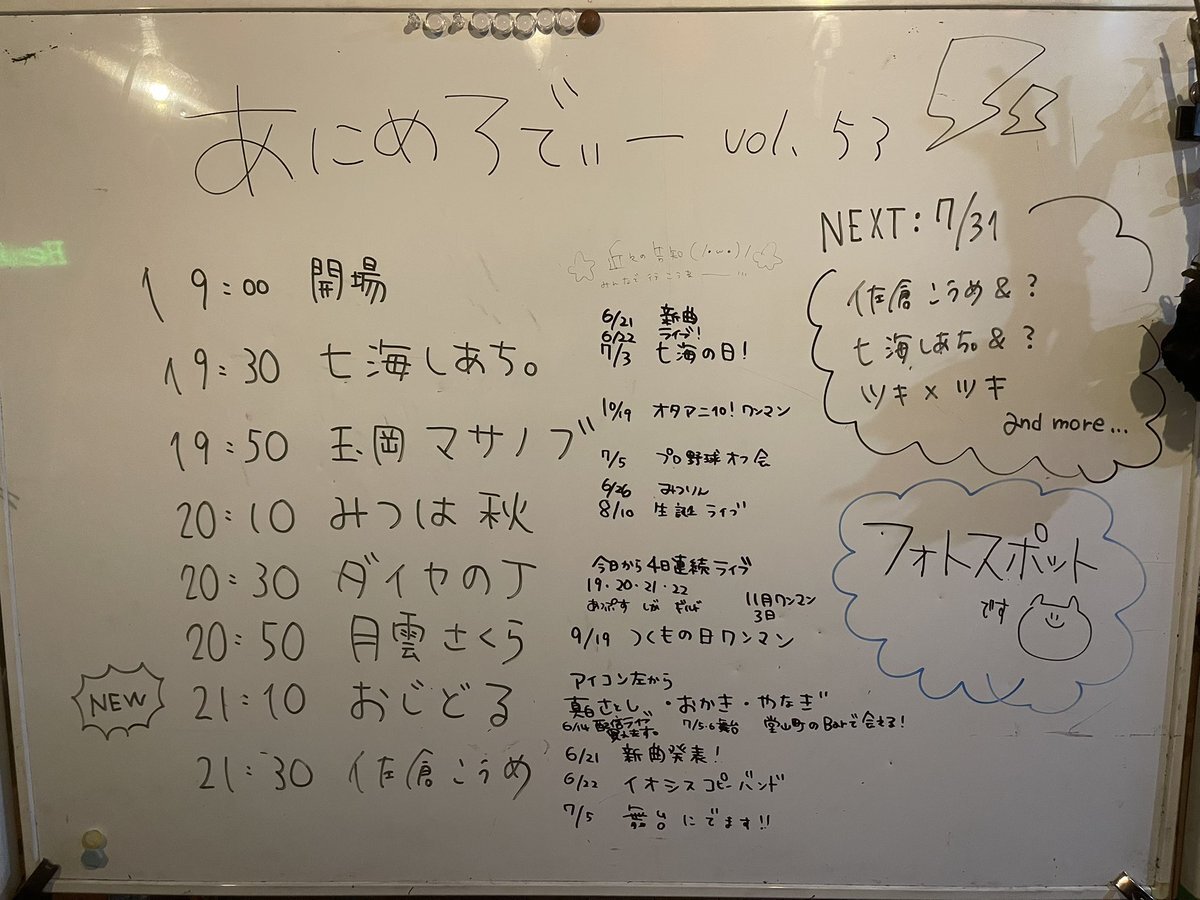 あにめろでぃー vol. 53
NEXT: 7/31
佐倉こうめ&?
七海しあち。&?
ツキ×ツキ
and more...
フォトスポット
です
19:00 開場
19:30 七海しあち。
19:50 玉岡マサノブ
20:10 みつは秋
20:30 ダイヤの丁
20:50 月雲さくら
NEW 21:10 おじどる
21:30 佐倉こうめ
の告知(/・ω・)/
みんなで行こうね
6/21 新曲
6/22 ライブ!
7/3 七海の日!
10/19 オタアニ10!ワンマン
7/5 プロ野球オフ会
6/26 みつりん
8/10 生誕ライブ
今日から4日連続ライブ
19・20・21・22
11月ワンマン
3日
9/19 つくもの日ワンマン
アイコン左から
さとし・おかき・やなぎ
6/14 配信ライブ 7/5.6舞台 堂山町のBarで会える!
買えます。
6/21 新曲発表!
6/22 イオシスコピーバンド
7/5 舞台にでます!!